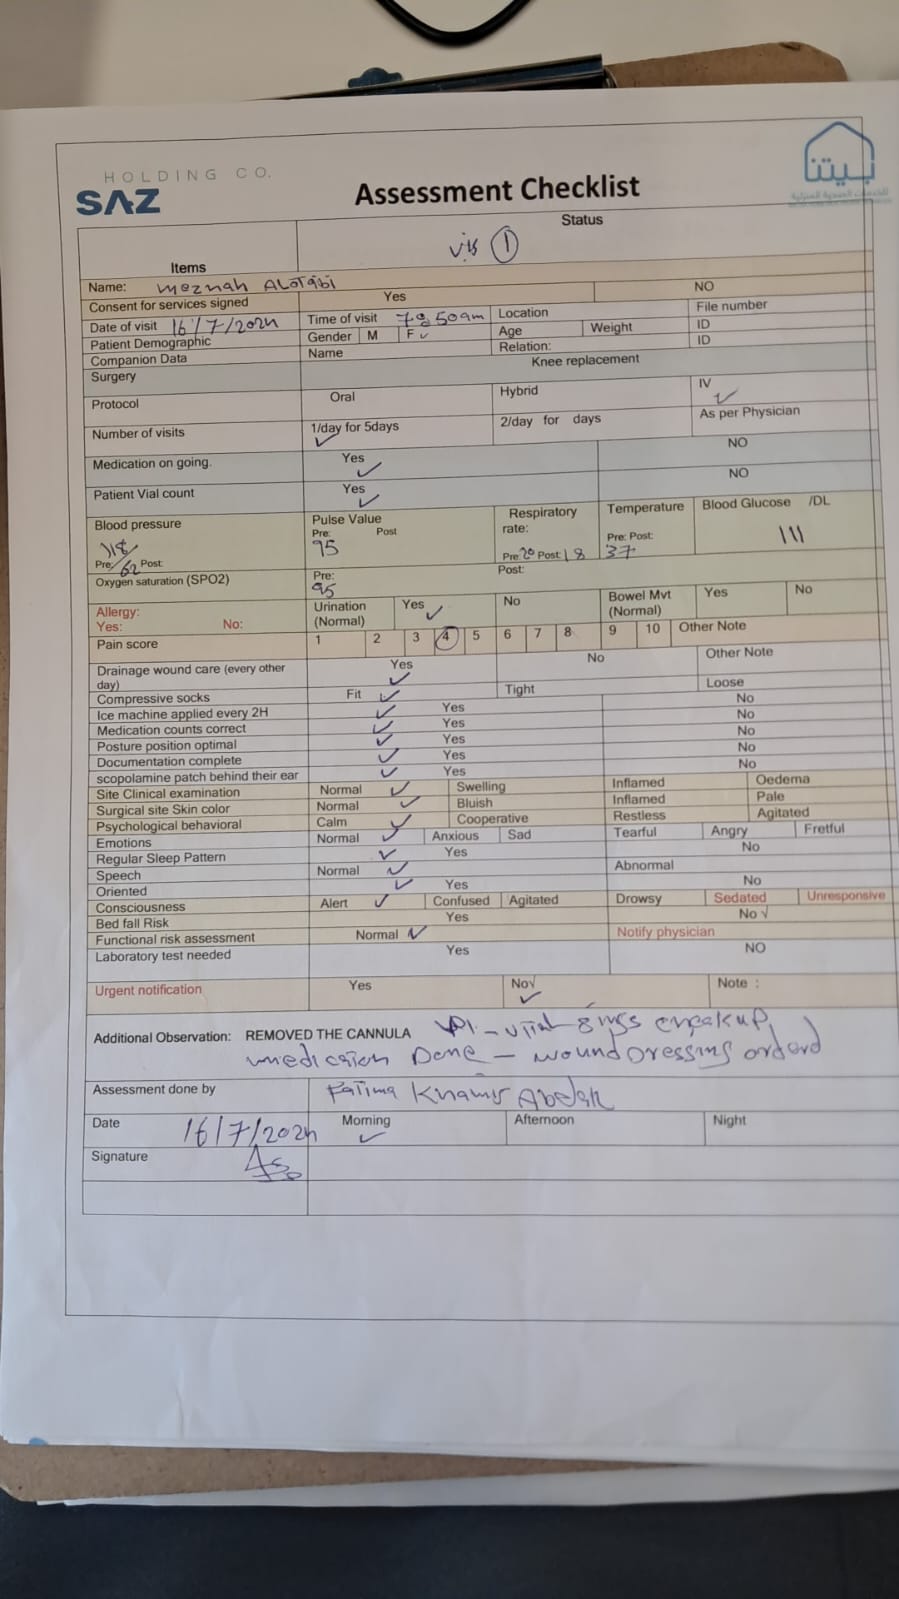 HOLDING CO.
SAZ
Assessment Checklist
بيتنا
للخدمات الصحية المنزلية
Items
Status
vis 1
Name: Meznah ALOTAibi
Consent for services signed Yes NO
Date of visit 16/7/2024 Time of visit 7:50am Location File number
Patient Demographic Gender M F ✓ Age Weight ID
Companion Data Name Relation: ID
Surgery Knee replacement
Protocol Oral Hybrid IV ✓
Number of visits 1/day for 5days ✓ 2/day for days As per Physician
Medication on going. Yes ✓ NO
Patient Vial count Yes ✓ NO
Blood pressure Pulse Value Respiratory rate: Temperature Blood Glucose /DL
Pre: 118/62 Post: Pre: 95 Post Pre: 20 Post: 18 Pre: 37 Post: 111
Oxygen saturation (SPO2) Pre: 95 Post:
Allergy: Yes: No: Urination (Normal) Yes ✓ No Bowel Mvt (Normal) Yes No
Pain score 1 2 3 4 5 6 7 8 9 10 Other Note
Drainage wound care (every other day) Yes ✓ No Other Note
Compressive socks Fit ✓ Tight Loose
Ice machine applied every 2H ✓ Yes No
Medication counts correct ✓ Yes No
Posture position optimal ✓ Yes No
Documentation complete ✓ Yes No
scopolamine patch behind their ear ✓ Yes No
Site Clinical examination Normal ✓ Swelling Inflamed Oedema
Surgical site Skin color Normal ✓ Bluish Inflamed Pale
Psychological behavioral Calm ✓ Cooperative Restless Agitated
Emotions Normal ✓ Anxious Sad Tearful Angry Fretful
Regular Sleep Pattern ✓ Yes No
Speech Normal ✓ Abnormal
Oriented ✓ Yes No
Consciousness Alert ✓ Confused Agitated Drowsy Sedated Unresponsive
Bed fall Risk Yes No √
Functional risk assessment Normal √ Notify physician
Laboratory test needed Yes NO
Urgent notification Yes No√ ✓ Note :
Additional Observation: REMOVED THE CANNULA
medication Done - wound Dressing
Assessment done by Fatima Khamis
Date 16/7/2024 Morning ✓ Afternoon Night
Signature